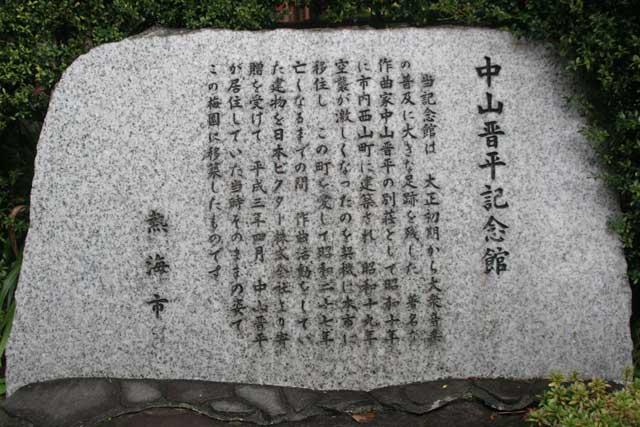 中山晋平記念館
当記念館は 大正初期から大衆音楽
の普及に大きな足跡を残した 著名な
作曲家中山晋平の別荘として昭和十年
に市内西山町に建築され 昭和十九年
空襲が激しくなったのを契機に本市に
移住し この町を愛して昭和二十七年
亡くなるまでの間 作曲活動をしてい
た建物を日本ビクター株式会社より寄
贈を受けて 平成三年四月 中山晋平
が居住していた当時そのままの姿で
この梅園に移築したものです
熱海市